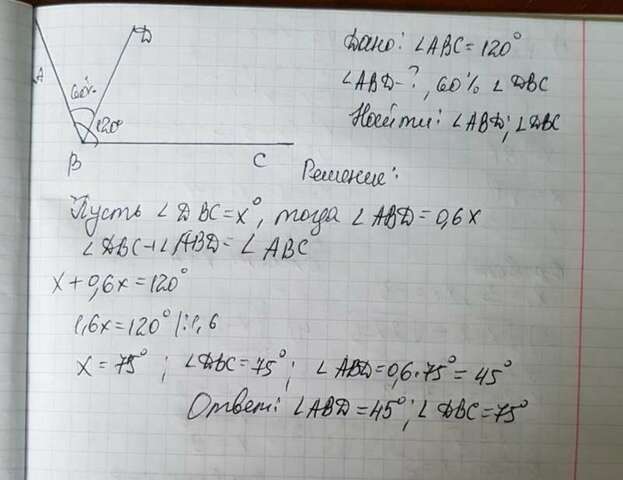 D
A
60%
120°
B
C
Дано: ∠ABC = 120°
∠ABD - ?, 60% ∠DBC
Найти: ∠ABD; ∠DBC
Решение:
Пусть ∠DBC = x°, тогда ∠ABD = 0,6x
∠DBC + ∠ABD = ∠ABC
x + 0,6x = 120°
1,6x = 120° |:1,6
x = 75° ; ∠DBC = 75° ; ∠ABD = 0,6·75° = 45°
Ответ: ∠ABD = 45° ; ∠DBC = 75°